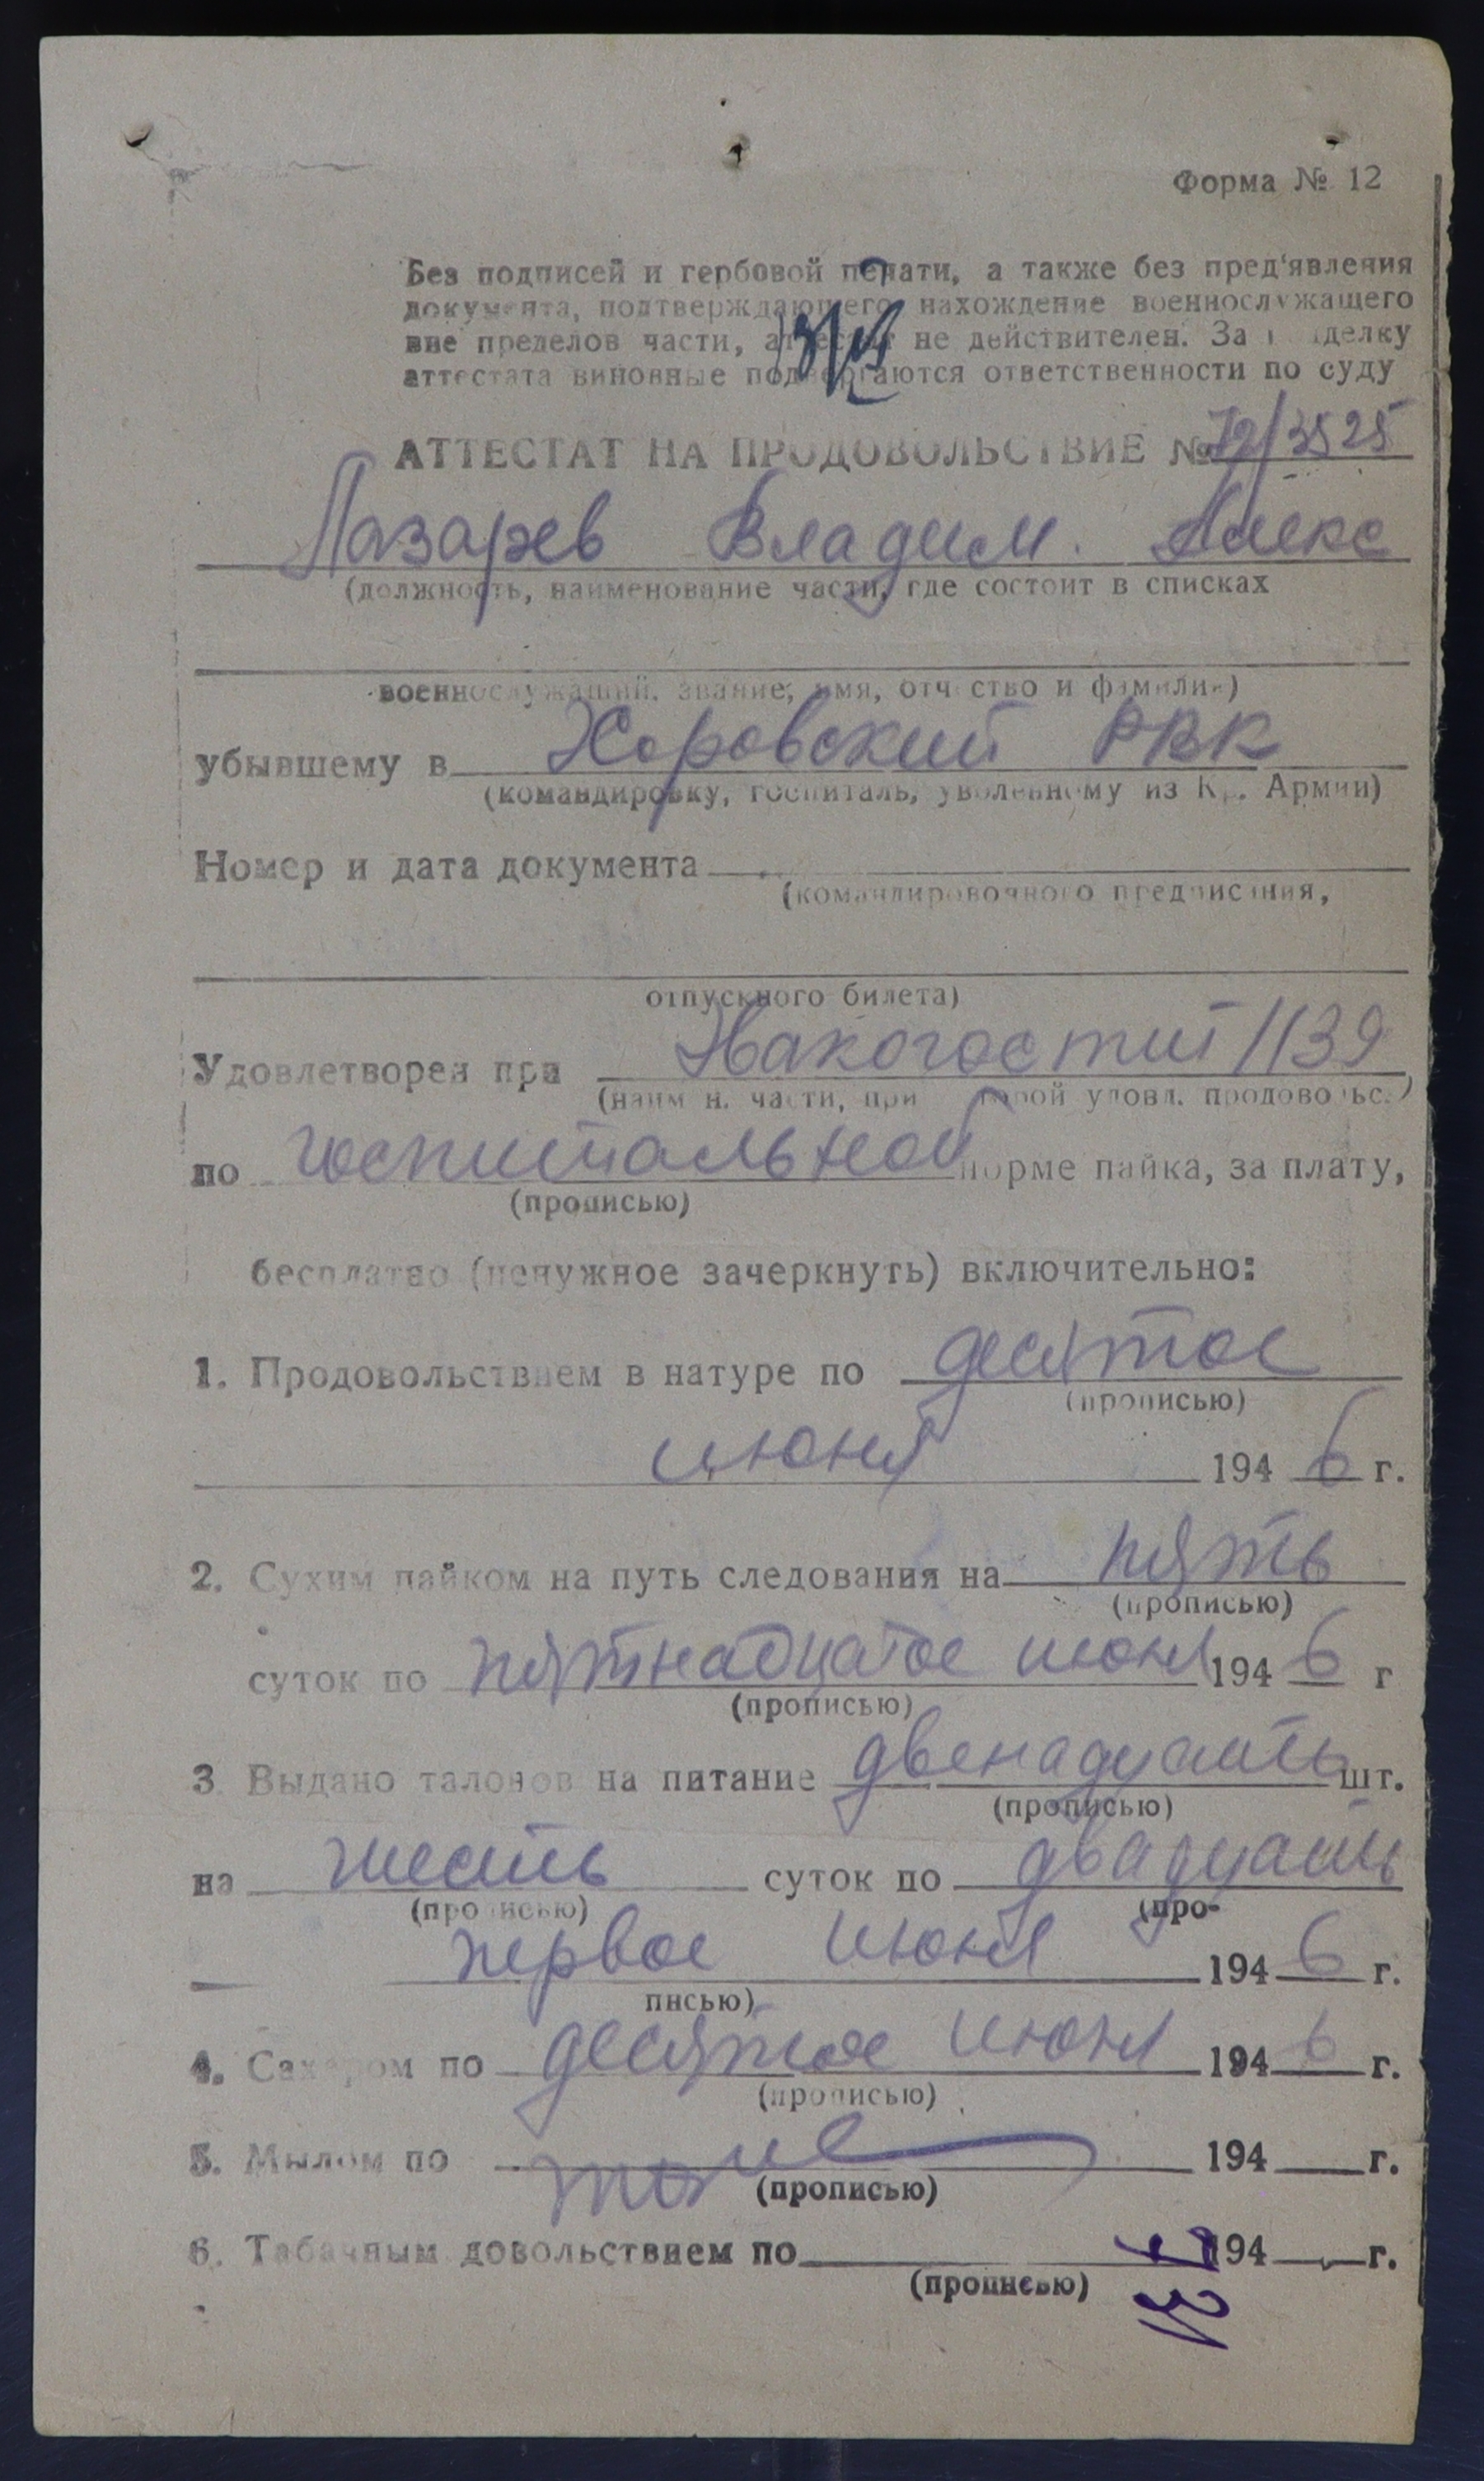 Форма № 12
Без подписей и гербовой печати, а также без пред'явления
документа, подтверждающего нахождение военнослужащего
вне пределов части, аттестат не действителен. За делку
аттестата виновные подвергаются ответственности по суду
АТТЕСТАТ НА ПРОДОВОЛЬСТВИЕ № 72/3525
Лазарев Владим. Алекс
(должность, наименование части, где состоит в списках
военнослужащий. звание, имя, отчество и фамилия)
убывшему в Хоровский РВК
(командировку, госпиталь, уволенному из Кр. Армии)
Номер и дата документа
(командировочного предписания,
отпускного билета)
Удовлетворен при 1139
(наим н. части, при которой удовл. продовольс.)
по госпитальной норме пайка, за плату,
(прописью)
бесплатно (ненужное зачеркнуть) включительно:
1. Продовольствием в натуре по десятое
(прописью)
июня 194 6 г.
2. Сухим пайком на путь следования на пять
(прописью)
суток по пятнадцатое июня 194 6 г
(прописью)
3. Выдано талонов на питание двенадцать шт.
(прописью)
на шесть суток по двадцать
(прописью) (про-
первое июня 194 6 г.
писью)
4. Сахаром по десятое июня 194 6 г.
(прописью)
5. Мылом по тоже 194 г.
(прописью)
6. Табачным довольствием по 194 г.
(прописью)